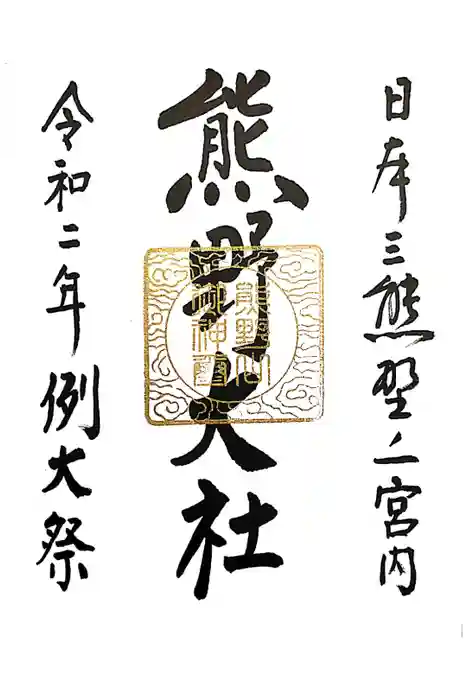 日本三熊野ノ一宮内
熊野大社
熊野山
御神璽
令和二年例大祭